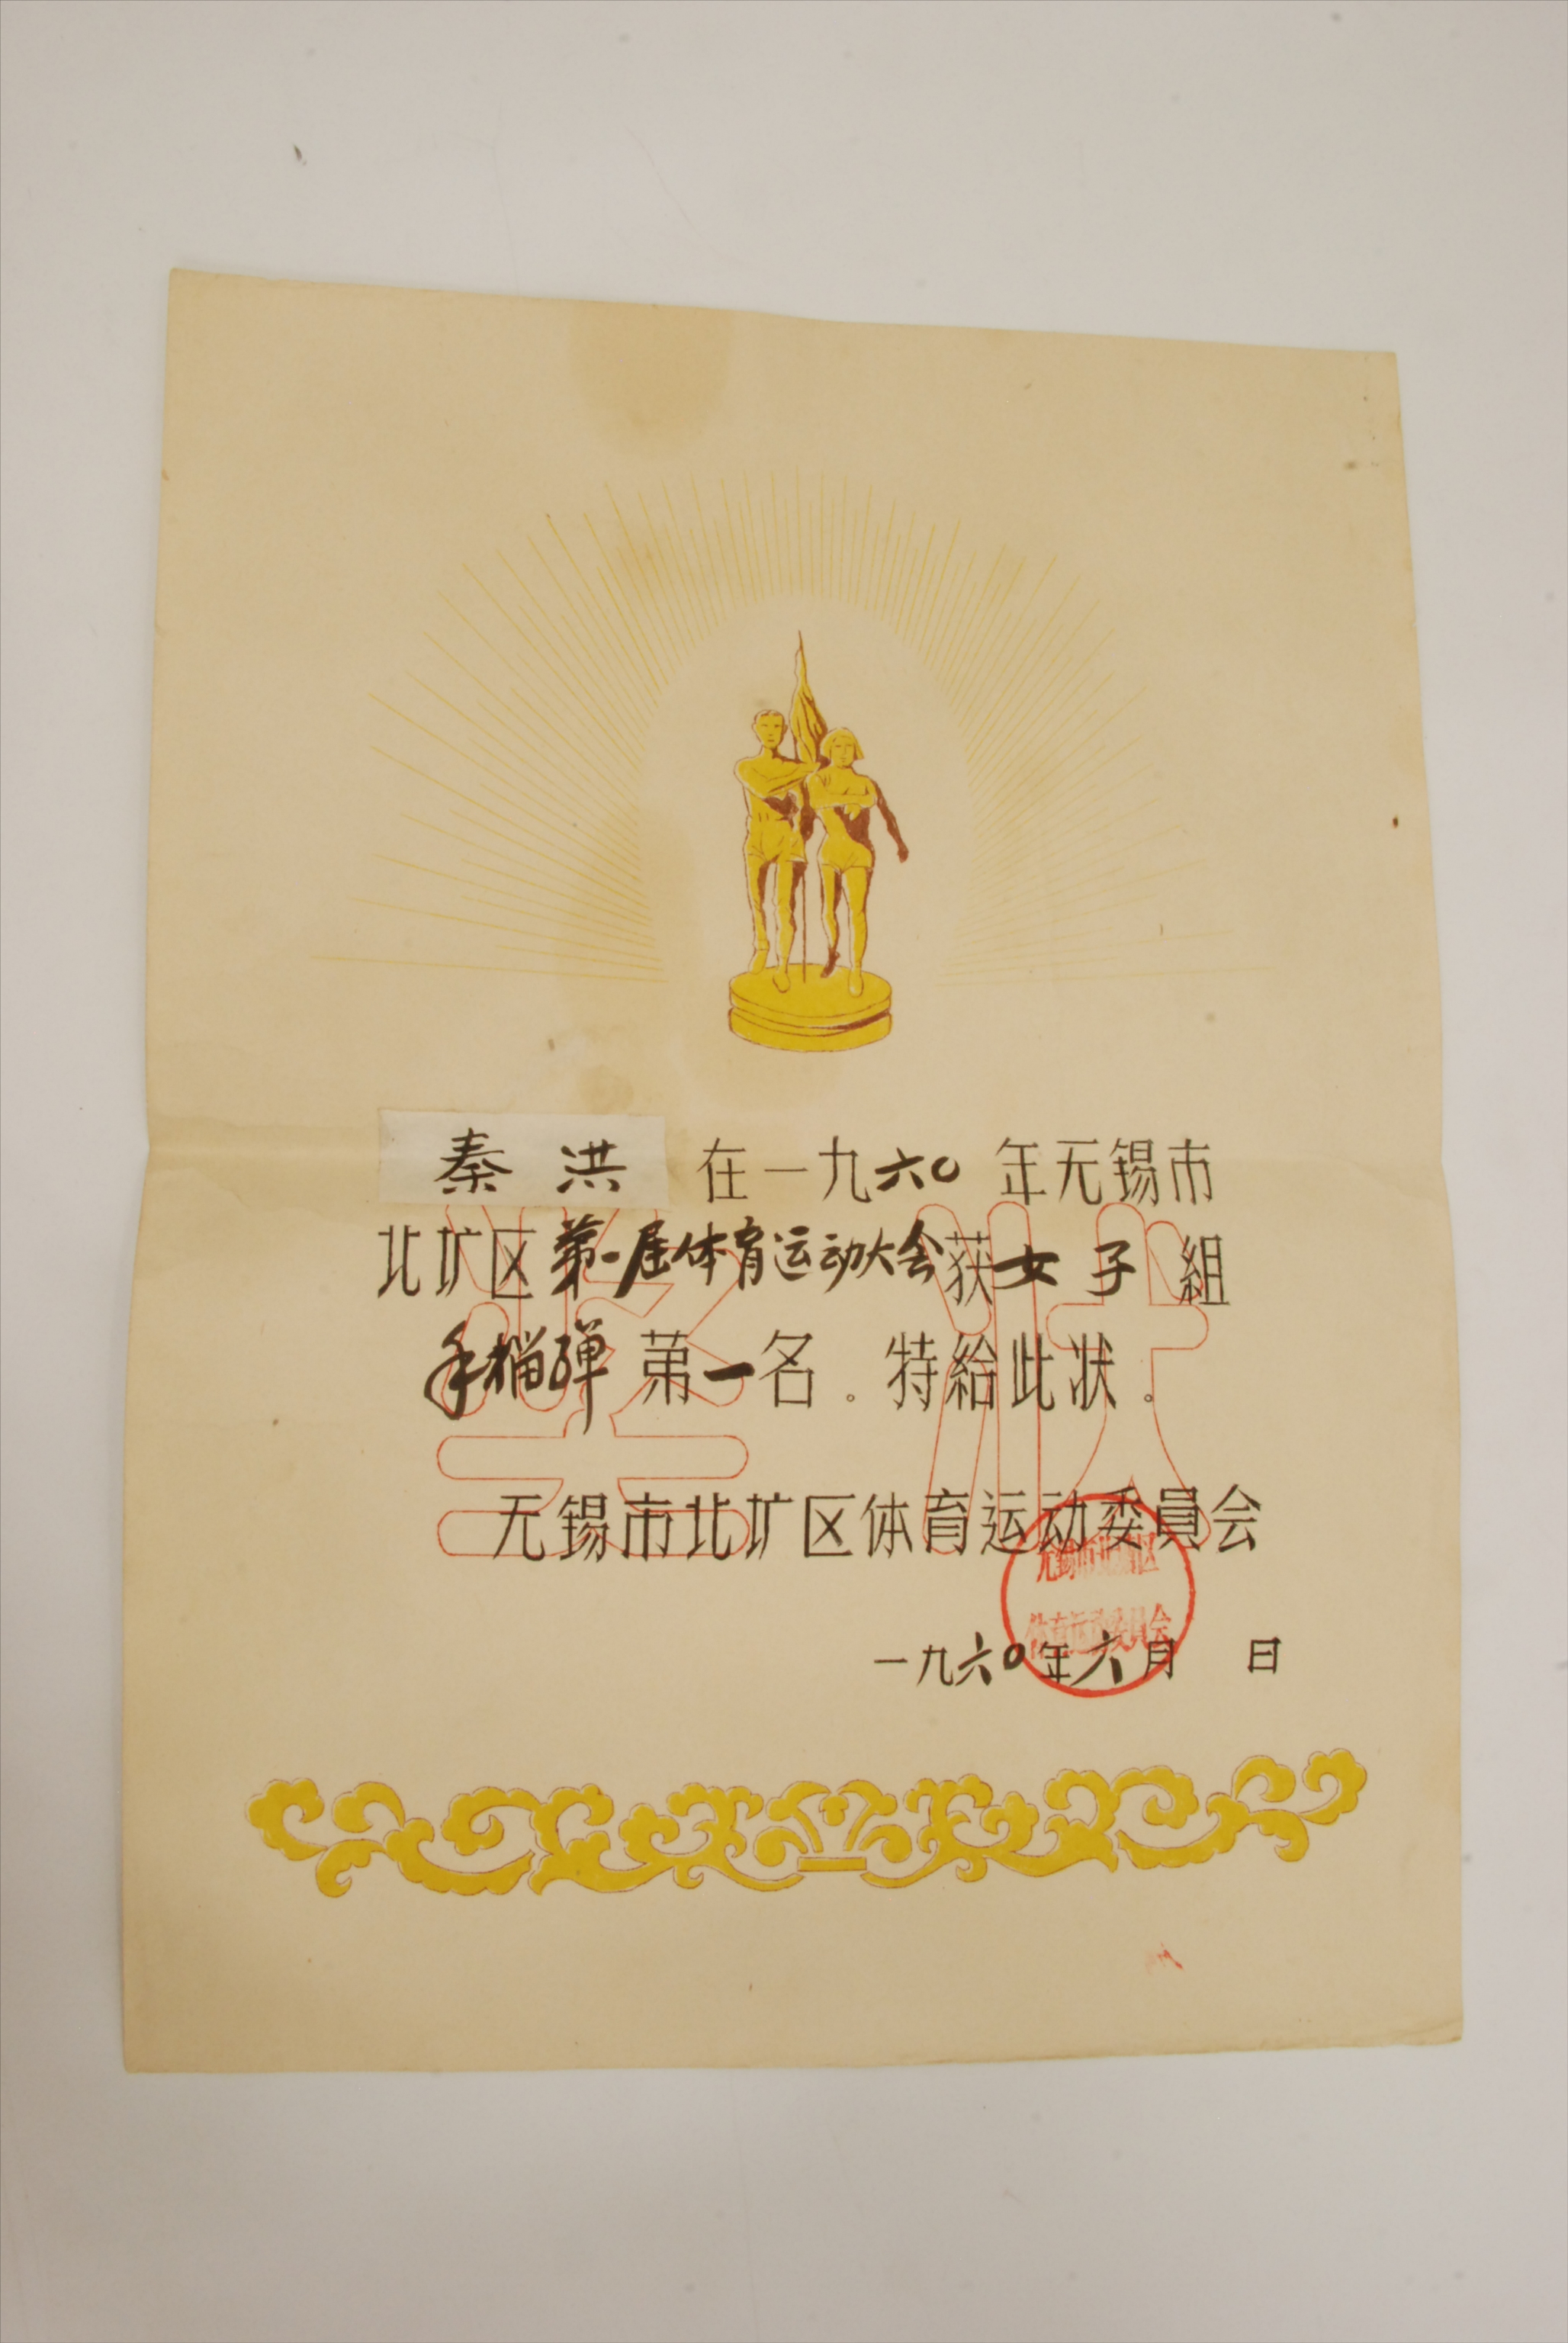 秦洪 在一九六〇年无锡市
北圹区第一届体育运动大会获女子組
手榴弹第一名。特給此状。
奖状
无锡市北圹区体育运动委員会
无錫市北塘区
体育运动委員会
一九六〇年六月 日